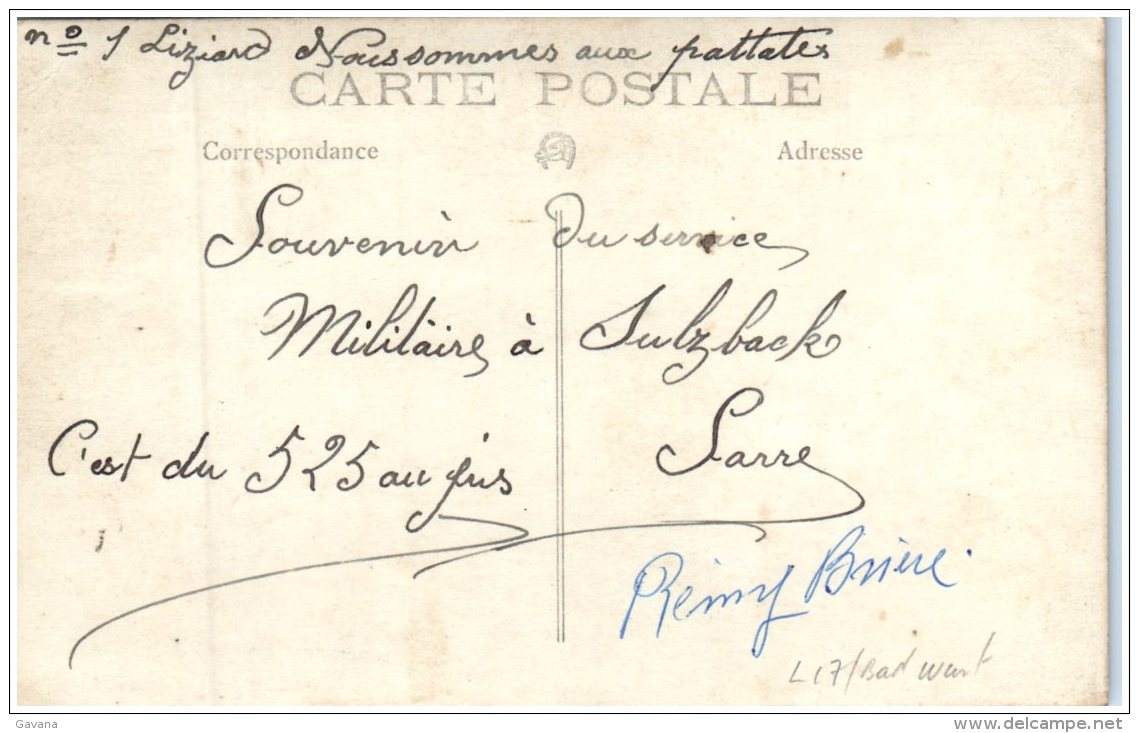 nº 1 Liziard Nous sommes aux pattates
CARTE POSTALE
Correspondance Adresse
Souvenir Du service
Militaire à Sulzback
Sarre
C'est du 525 au jus
Rémy Brière.
L17/Bad
Gavana
delcampe.net